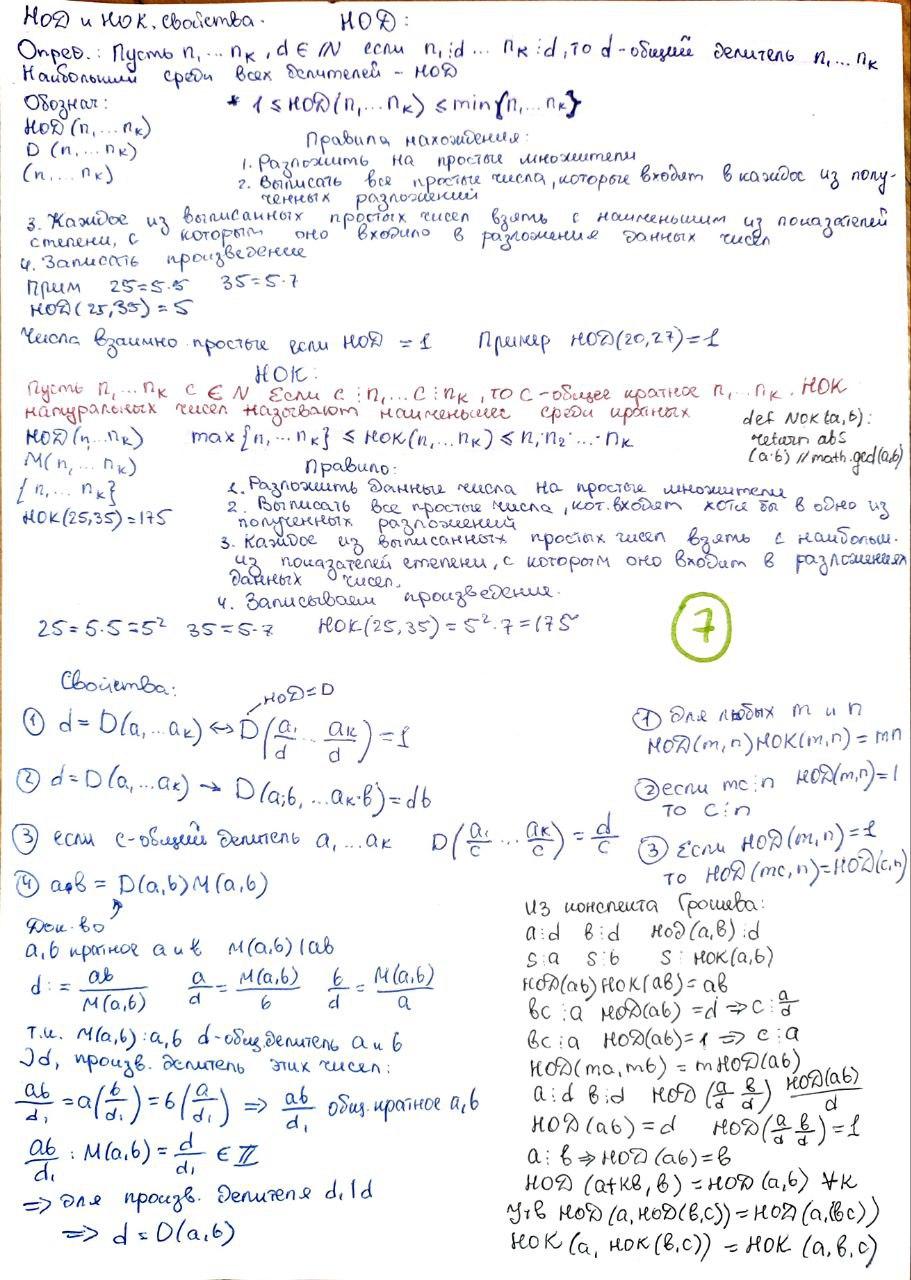 НОД и НОК. Свойства. НОД:
Опред.: Пусть n₁ ... nₖ, d ∈ ℕ если n₁⋮d ... nₖ⋮d, то d - общий делитель n₁ ... nₖ
Наибольший среди всех делителей - НОД
Обознач:
НОД (n₁ ... nₖ)
D (n₁ ... nₖ)
(n₁ ... nₖ)
* 1 ≤ НОД(n₁ ... nₖ) ≤ min{n₁ ... nₖ}
Правила нахождения:
1. Разложить на простые множители
2. Выписать все простые числа, которые входят в каждое из полу-
ченных разложений
3. Каждое из выписанных простых чисел взять с наименьшим из показателей
степени, с которым оно входило в разложения данных чисел
4. Записать произведение
Прим 25=5·5 35=5·7
НОД(25,35)=5
Числа взаимно простые если НОД = 1 Пример НОД(20,27)=1
НОК:
Пусть n₁ ... nₖ c ∈ N Если c⋮n₁ ... c⋮nₖ, то c - общее кратное n₁ ... nₖ. НОК
натуральных чисел называют наименьшее среди кратных
НОД(n₁ ... nₖ)
M(n₁ ... nₖ)
{n₁ ... nₖ}
НОК(25,35)=175
max{n₁ ... nₖ} ≤ НОК(n₁ ... nₖ) ≤ n₁·n₂· ... ·nₖ
def NOK(a,b):
return abs
(a·b)//math.gcd(a,b)
Правило:
1. Разложить данные числа на простые множители
2. Выписать все простые числа, кот. входят хотя бы в одно из
полученных разложений
3. Каждое из выписанных простых чисел взять с наибольш.
из показателей степени, с которым оно входит в разложениях
данных чисел.
4. Записываем произведение.
25=5·5=5² 35=5·7 НОК(25,35)=5²·7=175
7
Свойства:
НОД=D
① d = D(a₁ ... aₖ) ↔ D(a₁/d ... aₖ/d) = 1
② d = D(a₁ ... aₖ) → D(a₁b, ... aₖ·b) = db
③ если c - общий делитель a₁ ... aₖ D(a₁/c ... aₖ/c) = d/c
④ a·b = D(a,b) M(a,b)
Док-во
a,b кратное a и b M(a,b) | ab
d := ab/M(a,b) a/d = M(a,b)/b b/d = M(a,b)/a
т.к. M(a,b)⋮a,b d - общ. делитель a и b
d₁ произв. делитель этих чисел:
ab/d₁ = a(b/d₁) = b(a/d₁) ⇒ ab/d₁ общ. кратное a,b
ab/d₁ : M(a,b) = d/d₁ ∈ ℤ
⇒ для произв. делителя d₁|d
⇒ d = D(a,b)
① Для любых m и n
НОД(m,n)НОК(m,n) = mn
② если mc⋮n НОД(m,n)=1
то c⋮n
③ Если НОД(m,n)=1
то НОД(mc,n)=НОД(c,n)
Из конспекта Грошева:
a⋮d b⋮d НОД(a,b)⋮d
s⋮a s⋮b s⋮НОК(a,b)
НОД(ab)НОК(ab) = ab
bc⋮a НОД(ab) = d ⇒ c⋮a/d
bc⋮a НОД(ab)=1 ⇒ c⋮a
НОД(ma,mb) = mНОД(ab)
a⋮d b⋮d НОД(a/d b/d) НОД(ab)/d
НОД(ab) = d НОД(a/d b/d) = 1
a⋮b ⇒ НОД(ab) = b
НОД (a+kb, b) = НОД(a,b) ∀k
Утв НОД(a, НОД(b,c)) = НОД(a,(bc))
НОК (a, НОК(b,c)) = НОК (a,b,c)